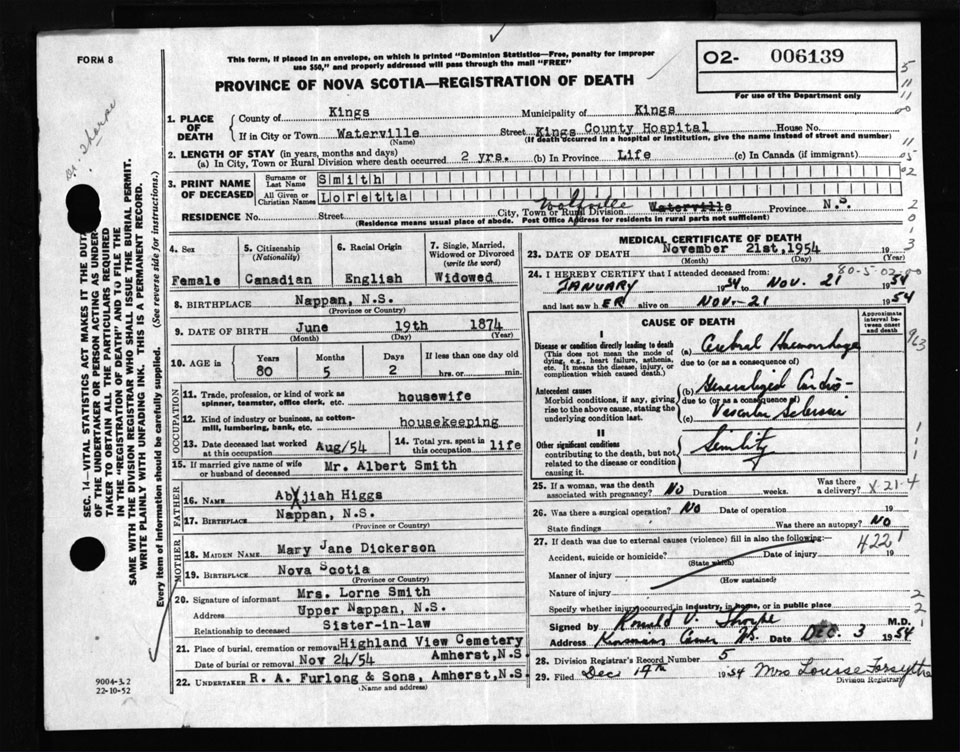 FORM 8
This form, if placed in an envelope, on which is printed "Dominion Statistics—Free, penalty for improper
use $50," and properly addressed will pass through the mail "FREE"
O2- 006139
For use of the Department only
PROVINCE OF NOVA SCOTIA—REGISTRATION OF DEATH
SEC. 14—VITAL STATISTICS ACT MAKES IT THE DUTY
OF THE UNDERTAKER OR PERSON ACTING AS UNDER-
TAKER TO OBTAIN ALL THE PARTICULARS REQUIRED
IN THE "REGISTRATION OF DEATH" AND TO FILE THE
SAME WITH THE DIVISION REGISTRAR WHO SHALL ISSUE THE BURIAL PERMIT.
WRITE PLAINLY WITH UNFADING INK. THIS IS A PERMANENT RECORD.
Every item of information should be carefully supplied. (See reverse side for instructions.)
1. PLACE OF DEATH
County of Kings Municipality of Kings
If in City or Town Waterville Street Kings County Hospital House No.
(Name) (If death occurred in a hospital or institution, give the name instead of street and number)
2. LENGTH OF STAY (in years, months and days)
(a) In City, Town or Rural Division where death occurred 2 yrs. (b) In Province Life (c) In Canada (if immigrant)
3. PRINT NAME OF DECEASED
Surname or Last Name Smith
All Given or Christian Names Loretta
RESIDENCE No. Street City, Town or Rural Division Wolfville Waterville Province N.S.
(Residence means usual place of abode. Post Office Address for residents in rural parts not sufficient)
4. Sex
Female
5. Citizenship
(Nationality)
Canadian
6. Racial Origin
English
7. Single, Married,
Widowed or Divorced
(write the word)
Widowed
8. BIRTHPLACE Nappan, N.S.
(Province or Country)
9. DATE OF BIRTH June 19th 1874
(Month) (Day) (Year)
10. AGE in Years Months Days If less than one day old
80 5 2 hrs. or min.
OCCUPATION
11. Trade, profession, or kind of work as
spinner, teamster, office clerk, etc. housewife
12. Kind of industry or business, as cotton-
mill, lumbering, bank, etc. housekeeping
13. Date deceased last worked
at this occupation Aug/54
14. Total yrs. spent in
this occupation life
15. If married give name of wife
or husband of deceased Mr. Albert Smith
FATHER
16. NAME AbXjiah Higgs
17. BIRTHPLACE Nappan, N.S.
(Province or Country)
MOTHER
18. MAIDEN NAME Mary Jane Dickerson
19. BIRTHPLACE Nova Scotia
(Province or Country)
20. Signature of informant Mrs. Lorne Smith
Address Upper Nappan, N.S.
Relationship to deceased Sister-in-law
21. Place of burial, cremation or removal Highland View Cemetery
Date of burial or removal Nov 24/54 Amherst, N.S.
22. UNDERTAKER R. A. Furlong & Sons, Amherst, N.S.
(Name and address)
9004-3.2
22-10-52
MEDICAL CERTIFICATE OF DEATH
23. DATE OF DEATH November 21st, 1954 19
(Month) (Day) (Year)
80-5-02-80
24. I HEREBY CERTIFY that I attended deceased from:
JANUARY 1954 to NOV. 21 1954
and last saw hER alive on NOV-21 1954
CAUSE OF DEATH
Approximate
interval be-
tween onset
and death
Disease or condition directly leading to death
(This does not mean the mode of
dying, e.g., heart failure, asthenia,
etc. It means the disease, injury, or
complication which caused death.)
(a) Cerebral Haemorrhage
due to (or as a consequence of)
Antecedent causes
Morbid conditions, if any, giving
rise to the above cause, stating the
underlying condition last.
(b) Generalized Cardio-
due to (or as a consequence of)
Vascular Sclerosis
(c)
II
Other significant conditions
contributing to the death, but not
related to the disease or condition
causing it.
Senility
25. If a woman, was the death
associated with pregnancy? No Duration weeks. Was there
a delivery? X 21-4
26. Was there a surgical operation? No Date of operation 19
State findings Was there an autopsy? No
27. If death was due to external causes (violence) fill in also the following:—
4221
Accident, suicide or homicide? Date of injury 19
(State which)
Manner of injury
(How sustained)
Nature of injury
Specify whether injury occurred in industry, in home, or in public place
Signed by Ronald V. Thorpe M.D.
Address N.S. Date DEC. 3 1954
28. Division Registrar's Record Number 5
29. Filed Dec 19th 1954 Mrs Louise Forsythe
Division Registrar